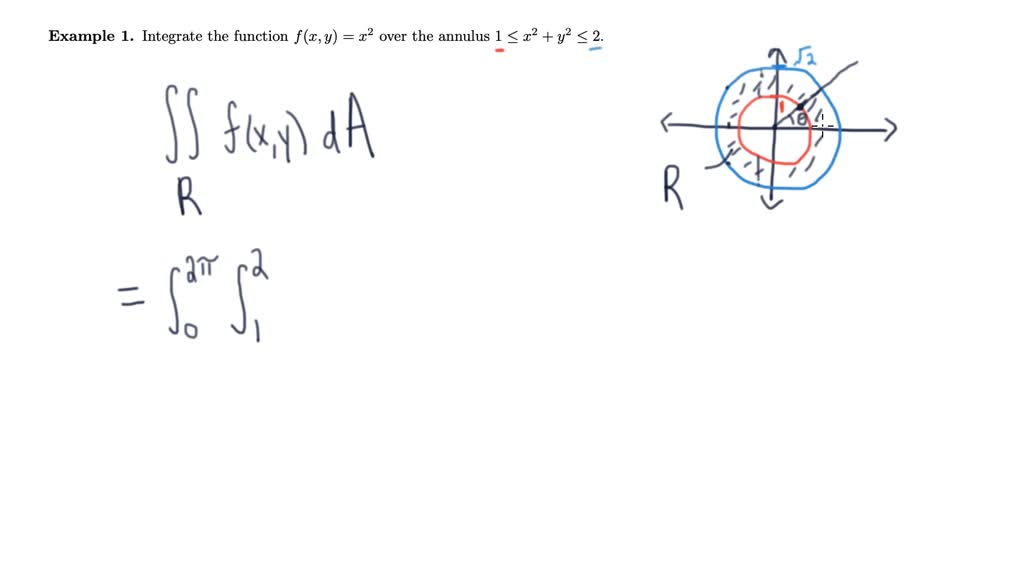 Example 1. Integrate the function f(x, y) = x² over the annulus 1 ≤ x² + y² ≤ 2.
√2
1
θ
∬ f(x,y) dA
R
R
= ∫₀^2π ∫₁^2